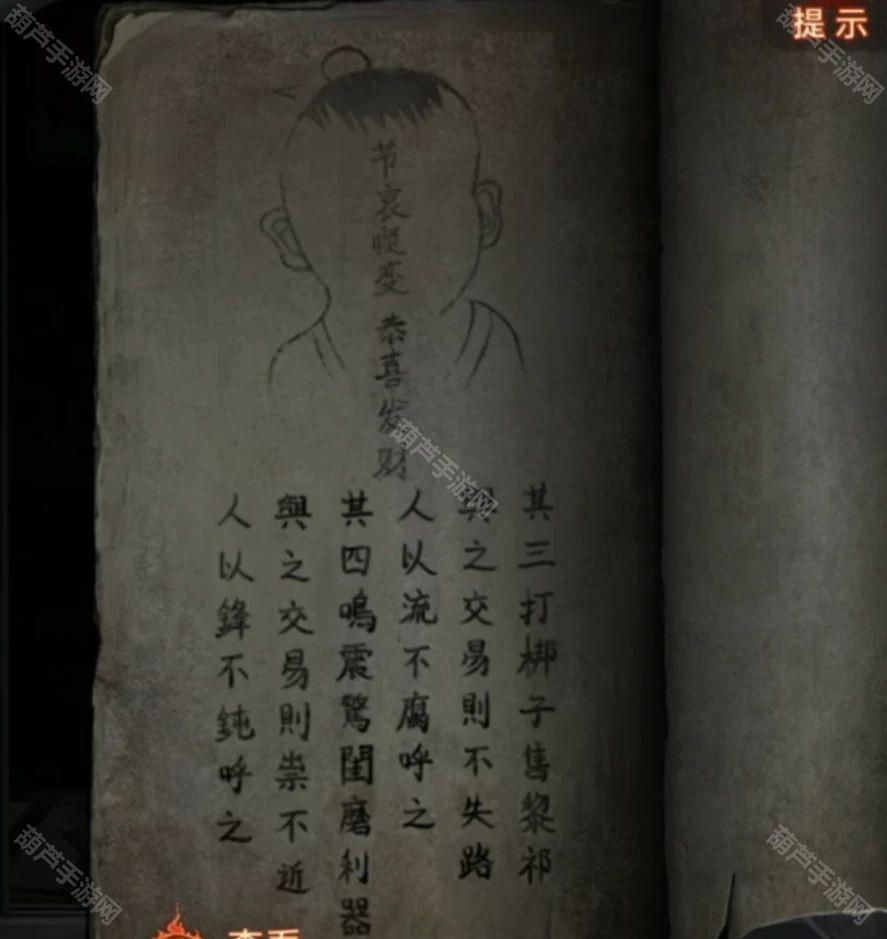 提示
节哀顺变
恭喜发财
其三打梆子售黎祁
與之交易則不失路
人以流不腐呼之
其四鳴震驚閨磨利器
與之交易則祟不近
人以鋒不鈍呼之
查看
葫芦手游网
葫芦手游网
葫芦手游网
葫芦手游网
葫芦手游网